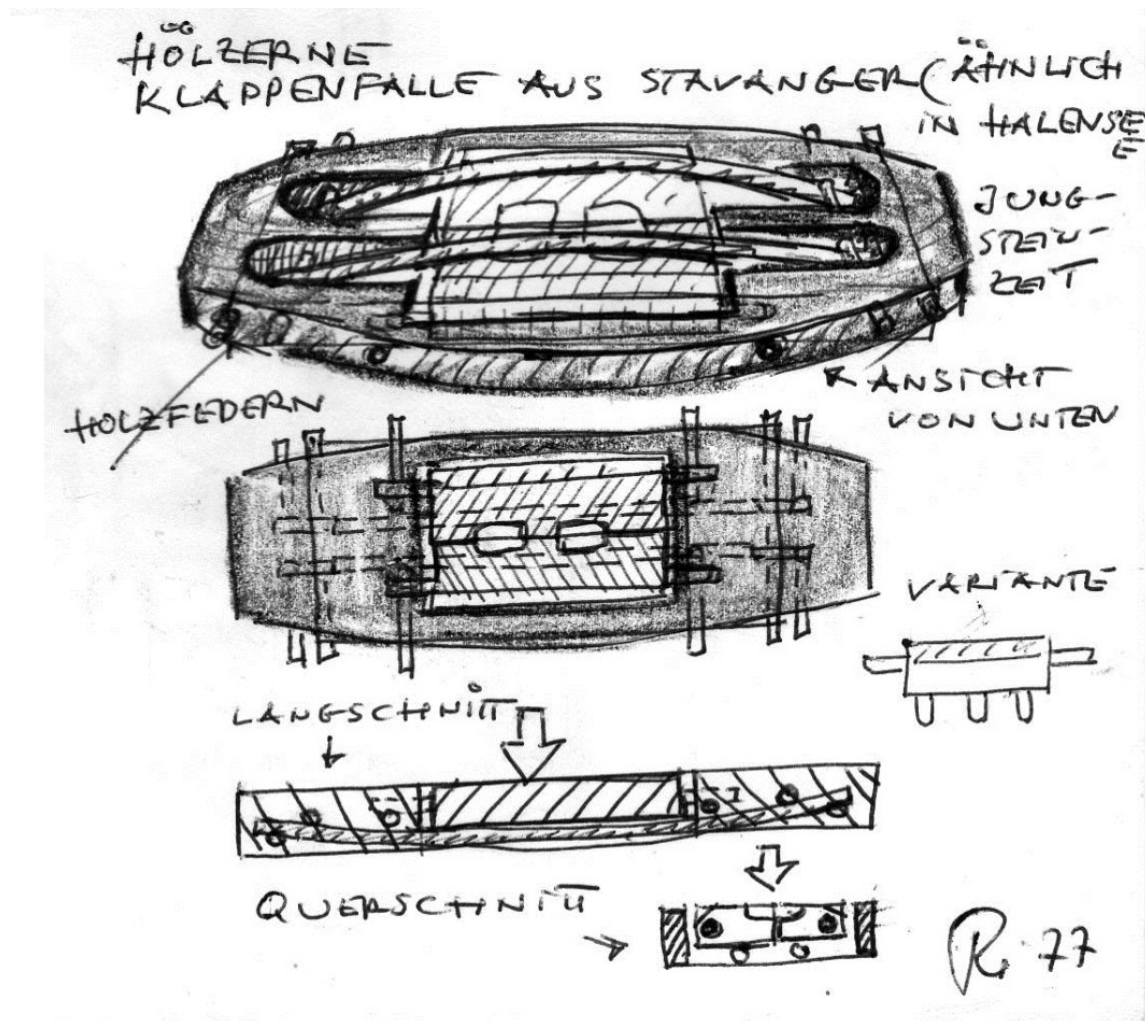 HÖLZERNE
KLAPPENFALLE AUS STAVANGER (ÄHNLICH
IN HALENSEE
JUNG-
STEIN-
ZEIT
HOLZFEDERN
ANSICHT
VON UNTEN
VARIANTE
LÄNGSCHNITT
QUERSCHNITT
R. 77